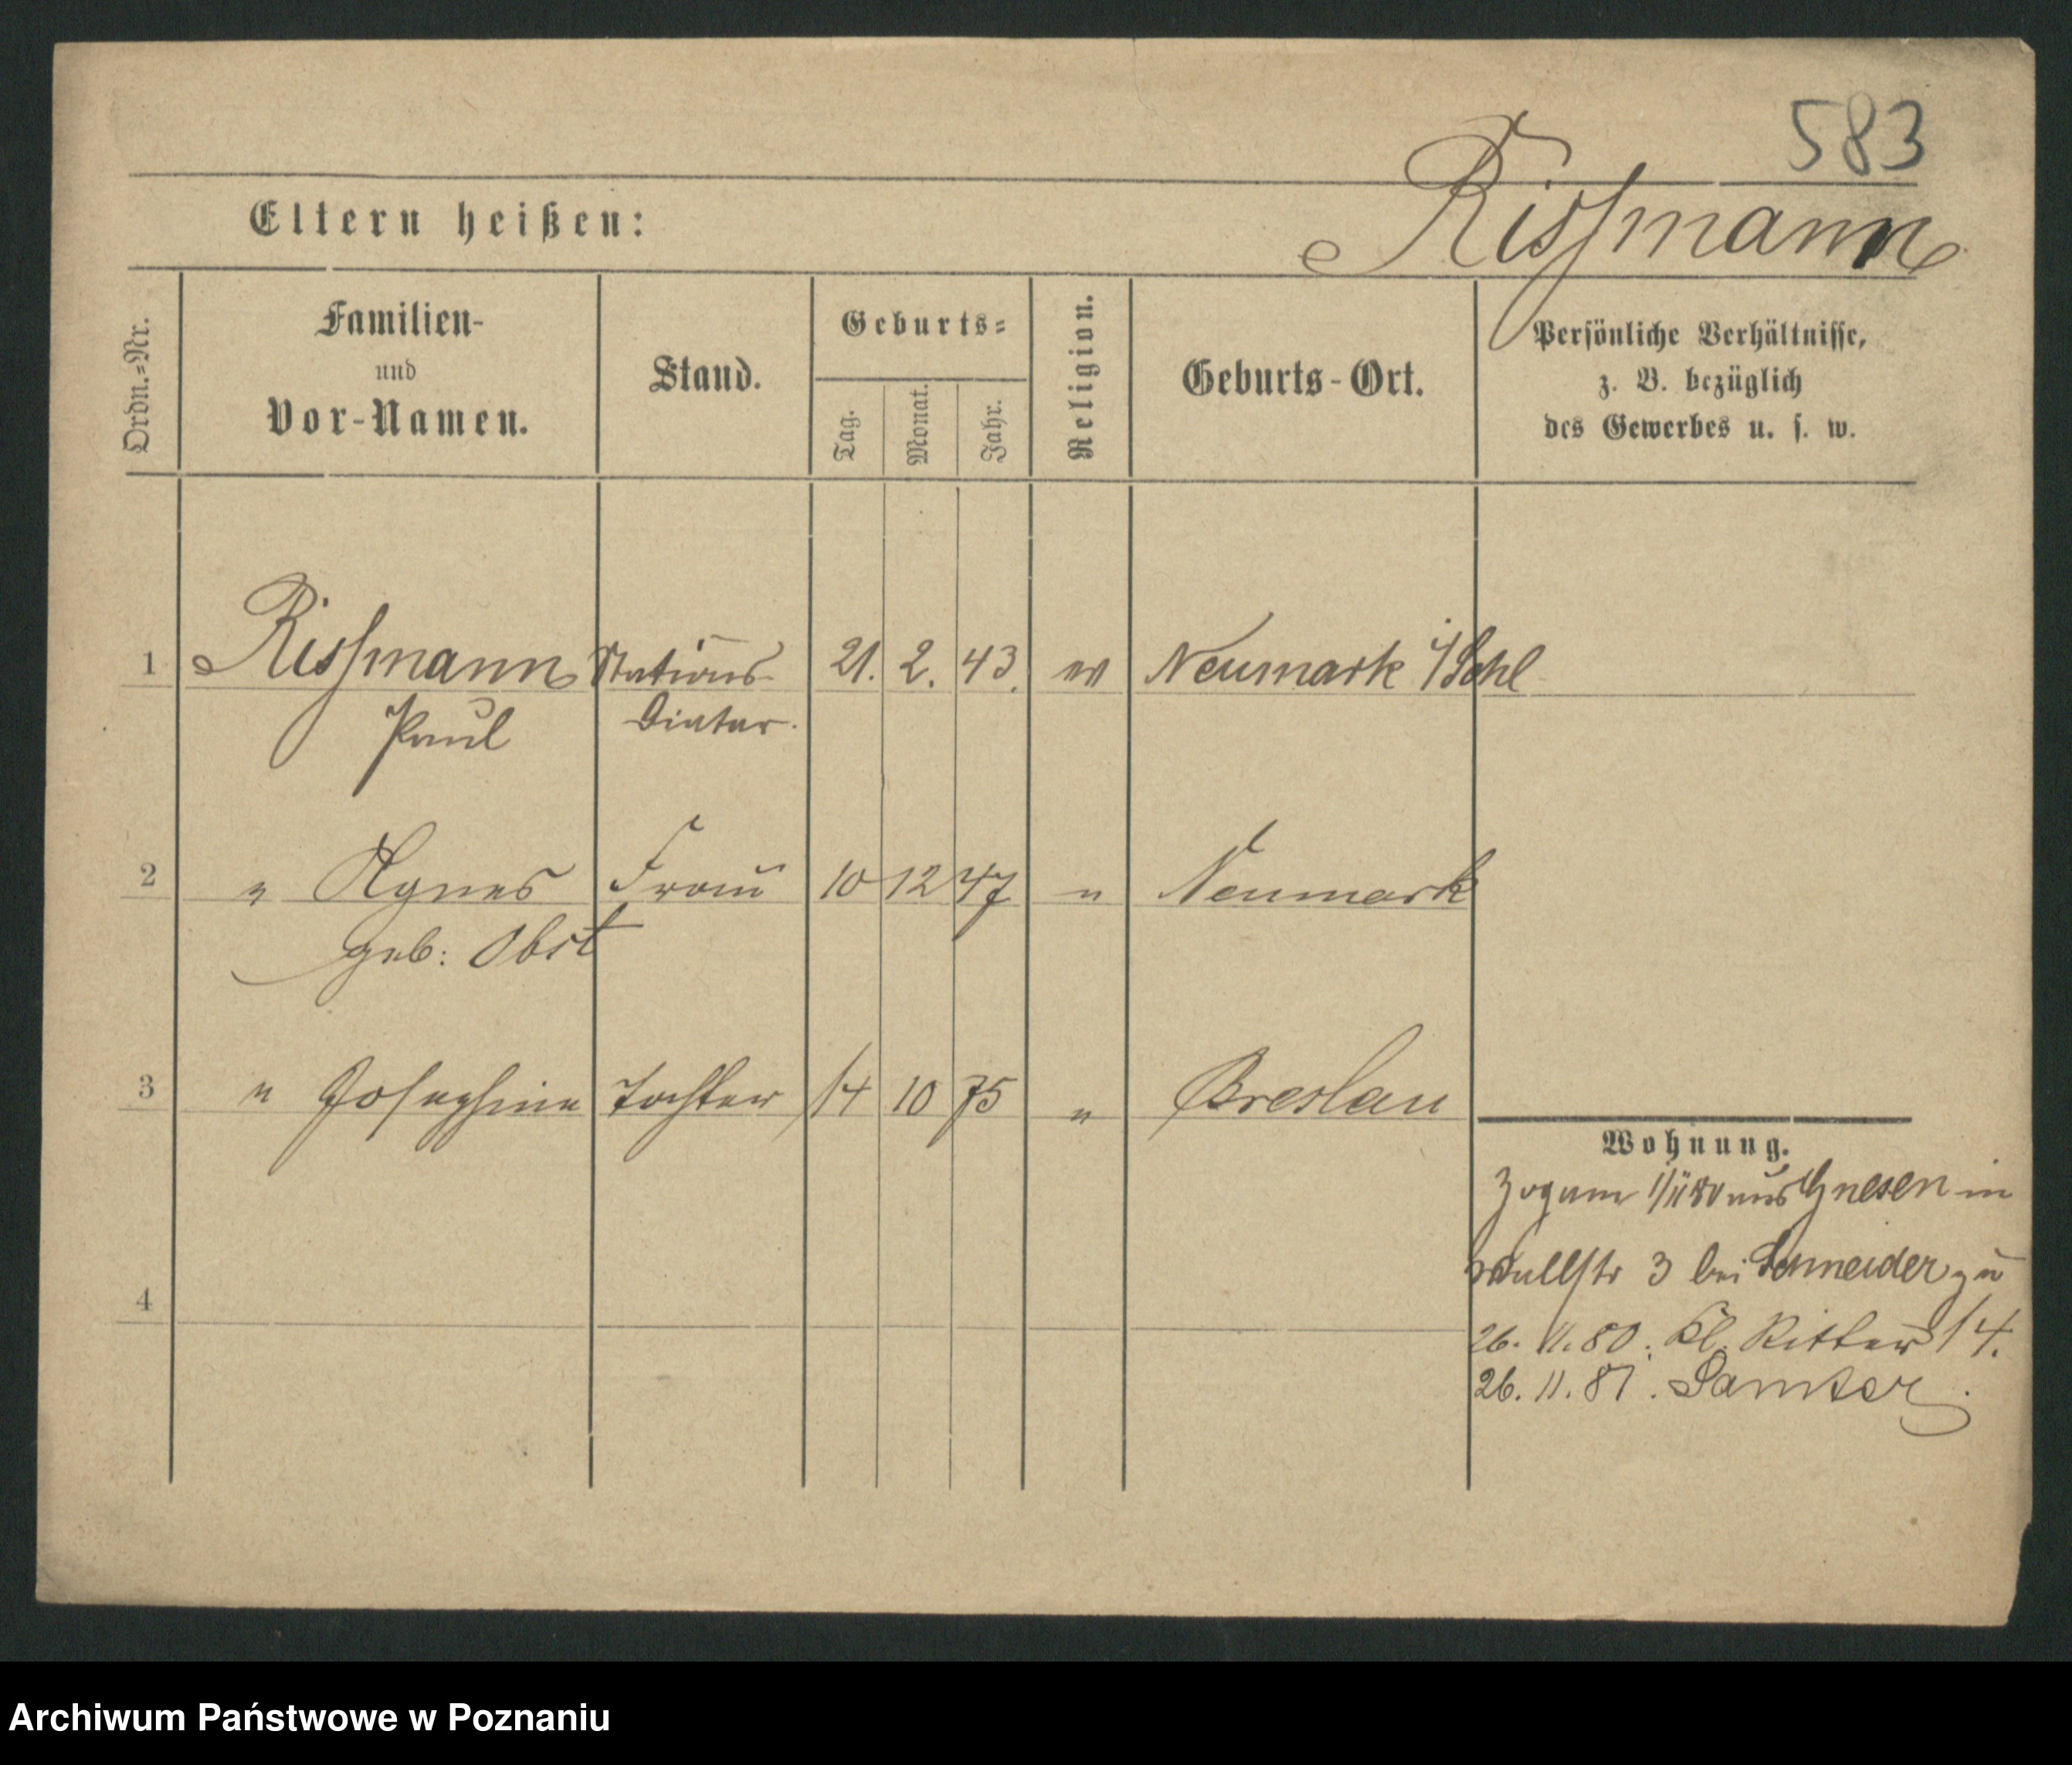 583
Rissmann
Eltern heißen:
Ordn.=Nr.
Familien-
und
Vor-Namen.
Stand.
Geburts=
Tag.
Monat.
Jahr.
Religion.
Geburts-Ort.
Persönliche Verhältnisse,
z. B. bezüglich
des Gewerbes u. s. w.
1 Rissmann Stations- 21. 2. 43. ev Neumark i/Schl
Paul Diätar.
2 " Agnes Frau 10 12 47 " Neumark
geb: Obst
3 " Josephine Tochter 14 10 75 " Breslau
Wohnung.
Zog am 1/ii 80 aus Gnesen in
Wallstr 3 bei Schneider zu
4
26. 11. 80: Kl. Ritter 14.
26. 11. 81. Samter.
Archiwum Państwowe w Poznaniu